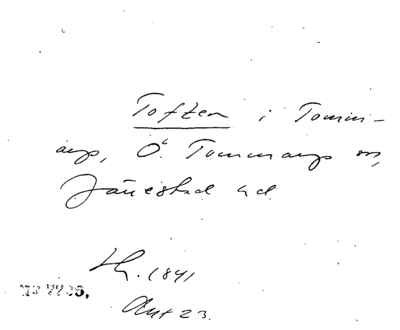 Toften i Tomm-
arp, Ö. Tommarps sn,
Järrestad hd
Lh. 1841
Akt 23.